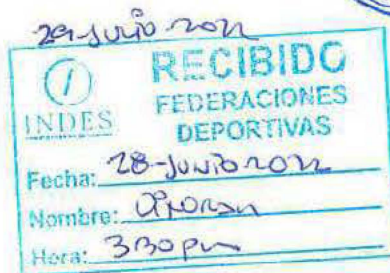 29-junio-2022
RECIBIDO
FEDERACIONES
DEPORTIVAS
INDES
Fecha: 28-junio 2022
Nombre:
Hora: 330pm